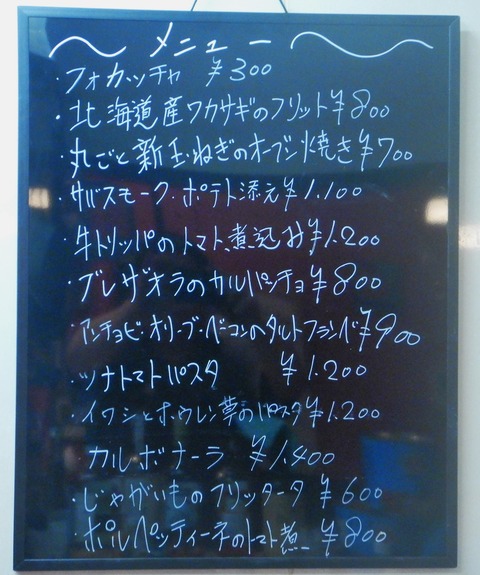 メニュー
・フォカッチャ ¥300
・北海道産ワカサギのフリット¥800
・丸ごと新玉ねぎのオーブン焼き¥700
・サバスモーク・ポテト添え¥1.100
・牛トリッパのトマト煮込み¥1.200
・ブレザオラのカルパッチョ¥800
・アンチョビ・オリーブ・ベーコンのタルトフランベ¥900
・ツナトマトパスタ ¥1.200
・イワシとホウレン草のパスタ¥1.200
カルボナーラ ¥1.400
・じゃがいものフリッタータ ¥600
・ポルペッティーネのトマト煮 ¥800